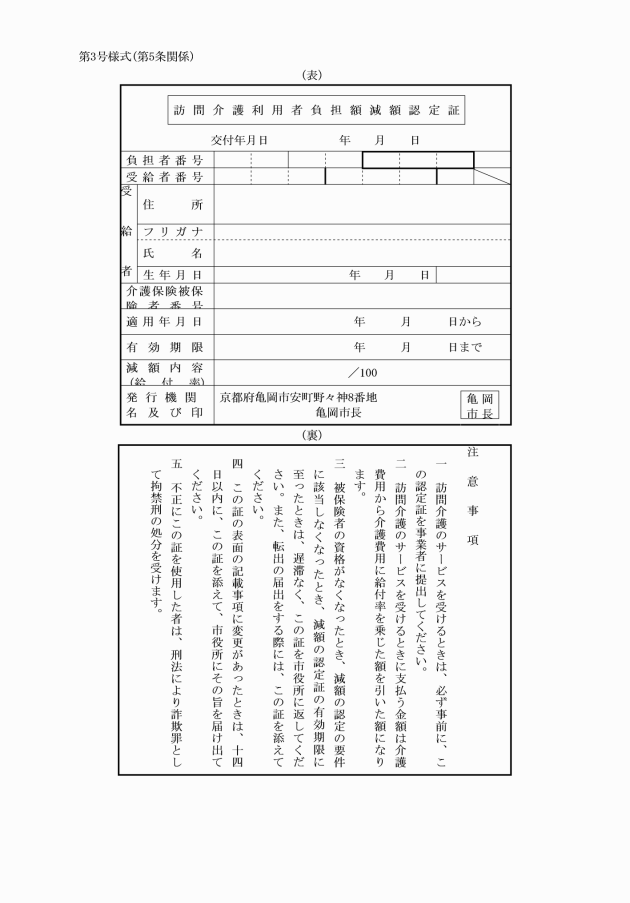 第3号様式(第5条関係)
(表)
訪問介護利用者負担額減額認定証
交付年月日　年　月　日
負担者番号
受給者番号
受給者
住所
フリガナ
氏名
生年月日　年　月　日
介護保険被保
険者番号
適用年月日　年　月　日から
有効期限　年　月　日まで
減額内容
(給付率)
／100
発行機関
名及び印
京都府亀岡市安町野々神8番地
亀岡市長
亀岡
市長
(裏)
注意事項
一　訪問介護のサービスを受けるときは、必ず事前に、こ
の認定証を事業者に提出してください。
二　訪問介護のサービスを受けるときに支払う金額は介護
費用から介護費用に給付率を乗じた額を引いた額になり
ます。
三　被保険者の資格がなくなったとき、減額の認定の要件
に該当しなくなったとき、減額の認定証の有効期限に
至ったときは、遅滞なく、この証を市役所に返してくだ
さい。また、転出の届出をする際には、この証を添えて
ください。
四　この証の表面の記載事項に変更があったときは、十四
日以内に、この証を添えて、市役所にその旨を届け出て
ください。
五　不正にこの証を使用した者は、刑法により詐欺罪とし
て拘禁刑の処分を受けます。